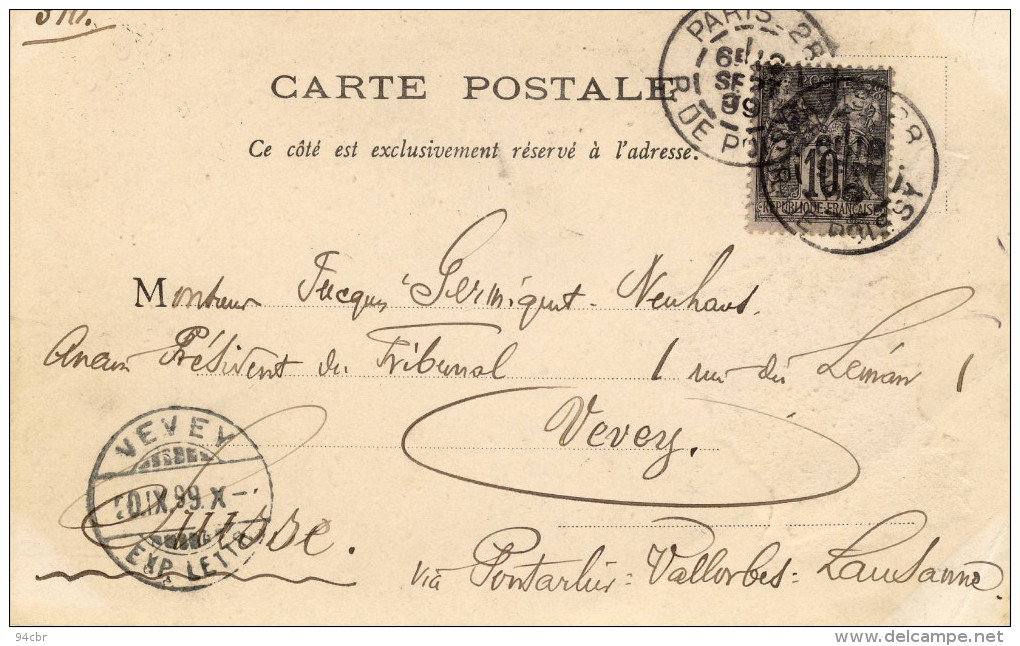 310.
CARTE POSTALE
Ce côté est exclusivement réservé à l'adresse.
PARIS-28
6E
SE
99
R. DE PO
28
POSTE
10
REPUBLIQUE FRANÇAISE
Monsieur Jacques Germiquet-Neuhaus.
Ancien Président du Tribunal 1 rue du Léman 1
Vevey.
VEVEY
20.IX.99.X-
EXP. LETTR
Suisse.
via Pontarlier=Vallorbes=Lausanne.
94cbr
delcampe.net